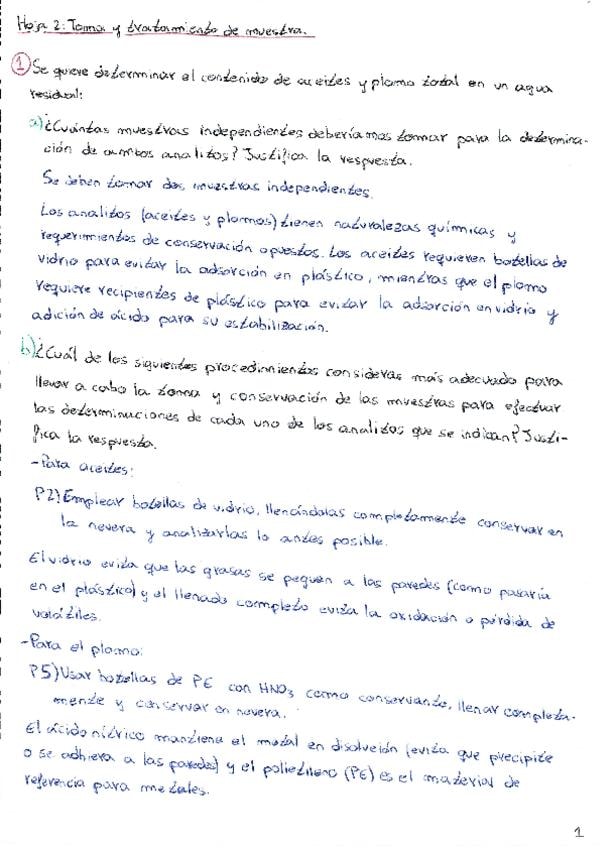 Hoja 2: Toma y tratamiento de muestra.
1 Se quiere determinar el contenido de aceites y plomo total en un agua
residual:
a) ¿Cuántas muestras independientes deberíamos tomar para la determina-
ción de ambos analitos? Justifica la respuesta.
Se deben tomar dos muestras independientes.
Los analitos (aceites y plomos) tienen naturalezas químicas y
requerimientos de conservación opuestos. Los aceites requieren botellas de
vidrio para evitar la adsorción en plástico, mientras que el plomo
requiere recipientes de plástico para evitar la adsorción en vidrio y
adición de ácido para su estabilización.
b) ¿Cuál de los siguientes procedimientos consideras más adecuado para
llevar a cabo la toma y conservación de las muestras para efectuar
las determinaciones de cada uno de los analitos que se indican? Justi-
fica la respuesta.
-Para aceites:
P2) Emplear botellas de vidrio, llenándolas completamente conservar en
la nevera y analizarlas lo antes posible.
El vidrio evita que las grasas se peguen a las paredes (como pasaría
en el plástico) y el llenado completo evita la oxidación o pérdida de
volátiles.
-Para el plomo:
P5) Usar botellas de PE con HNO₃ como conservante, llenar completa-
mente y conservar en nevera.
El ácido nítrico mantiene el metal en disolución (evita que precipite
o se adhiera a las paredes) y el polietileno (PE) es el material de
referencia para metales.
1